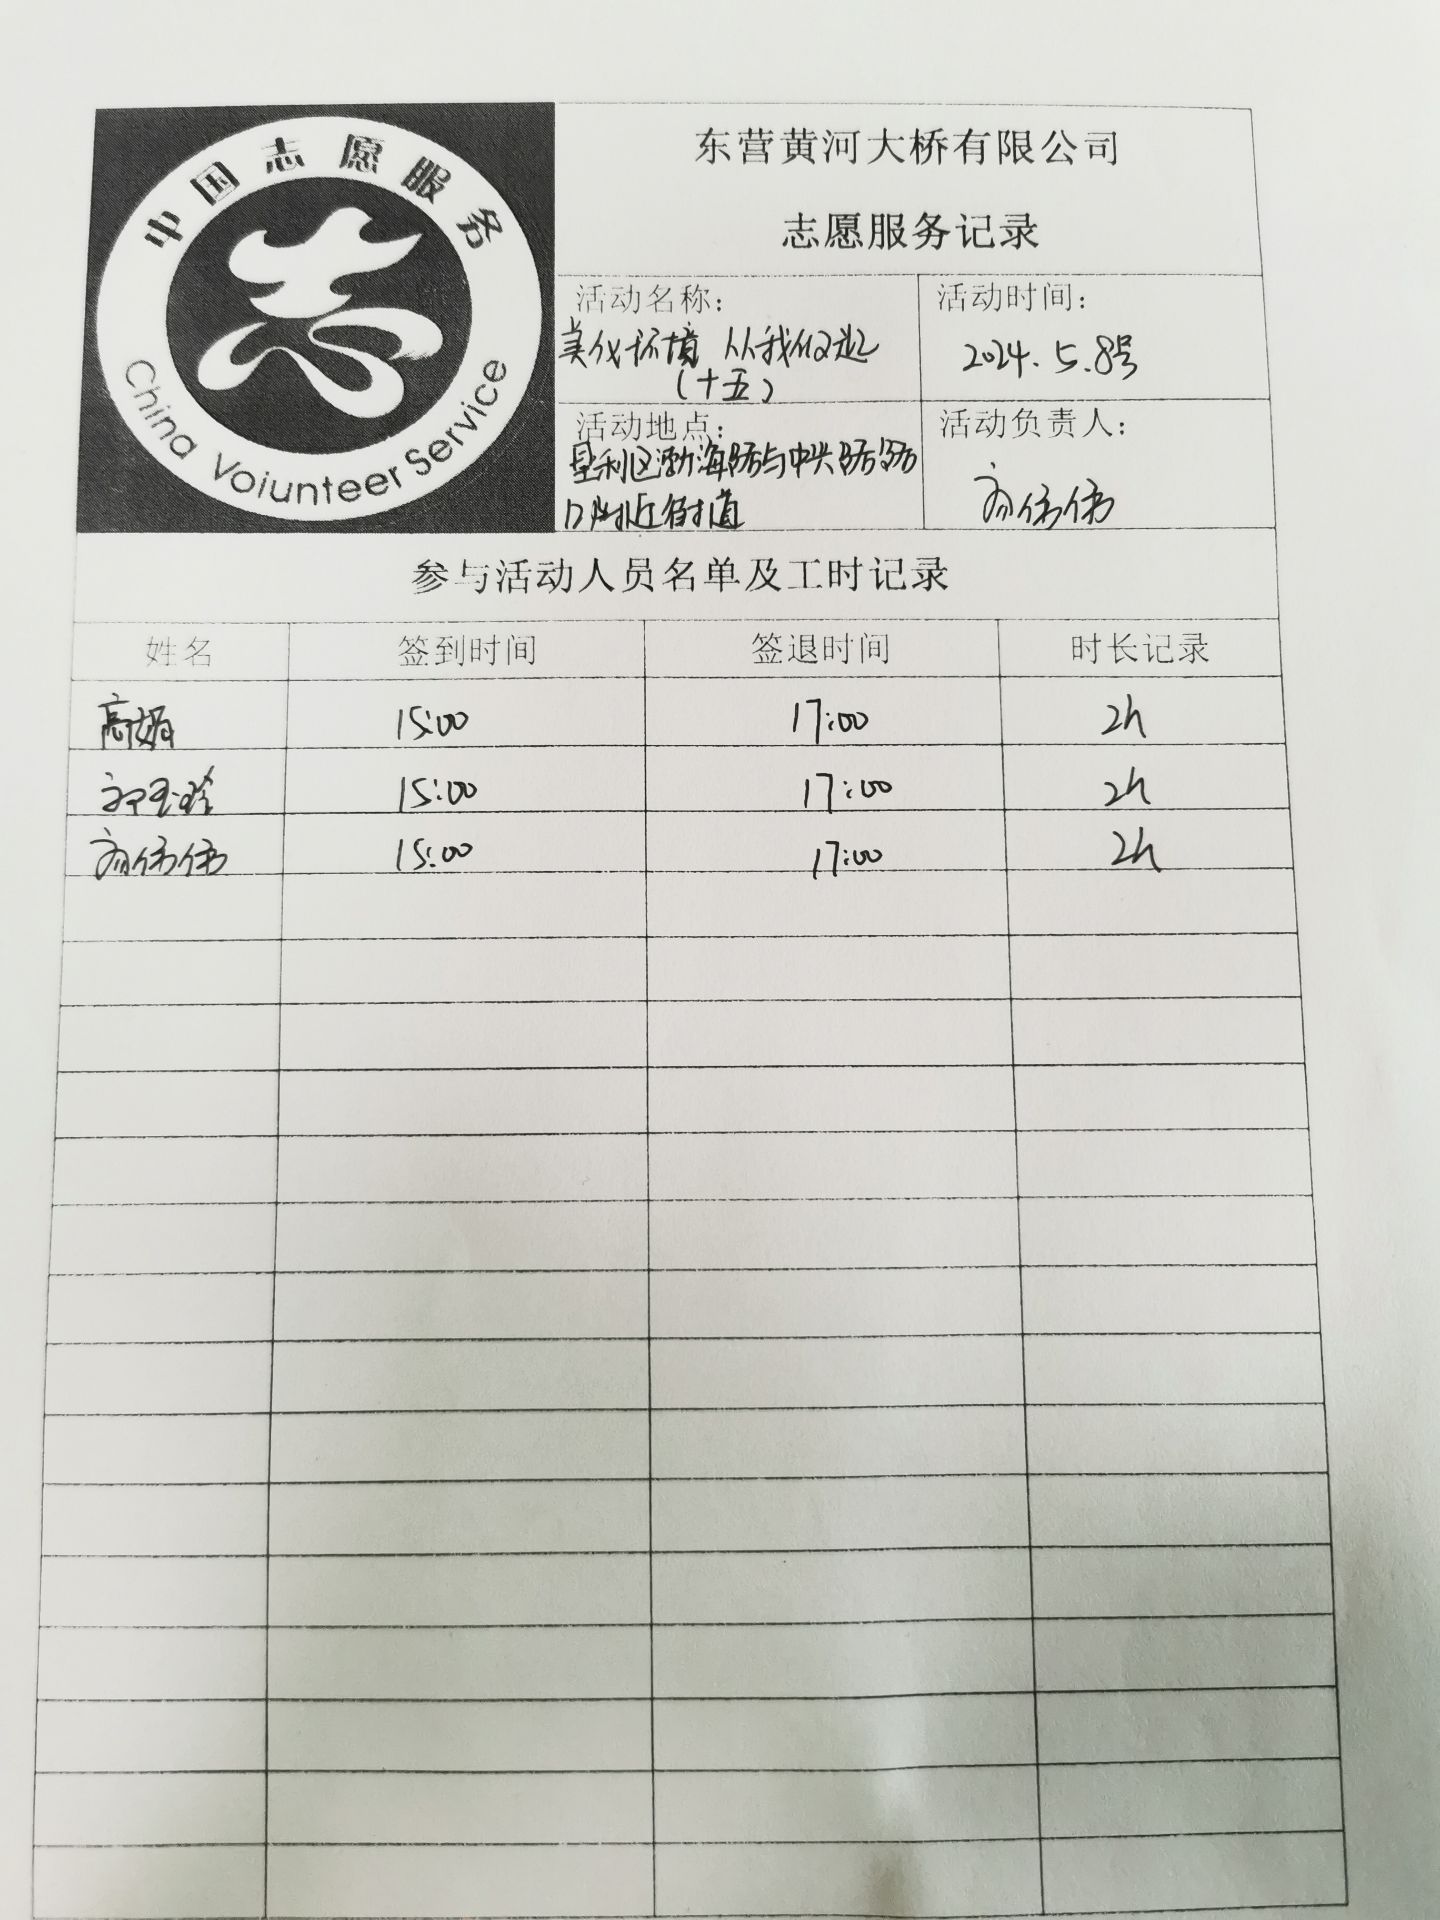 中国志愿服务
China Voiunteer Service
东营黄河大桥有限公司
志愿服务记录
活动名称：
美化环境 从我做起
（十五）
活动时间：
2024.5.8号
活动地点：
垦利区渤海路与中兴路路
口附近街道
活动负责人：
齐伟伟
参与活动人员名单及工时记录
姓名 签到时间 签退时间 时长记录
高娟 15:00 17:00 2h
15:00 17:00 2h
齐伟伟 15:00 17:00 2h